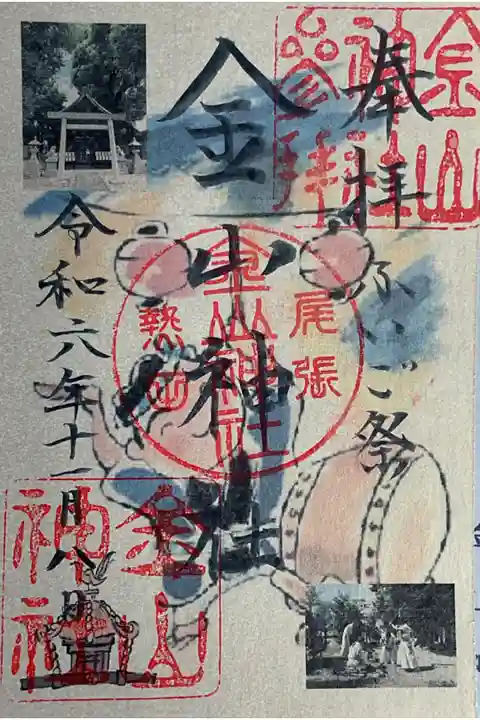 奉拝
ふいご祭
金山神社
令和六年十一月八日
金山
神社
参拝
尾張
金山神社
熱田
金山
神社